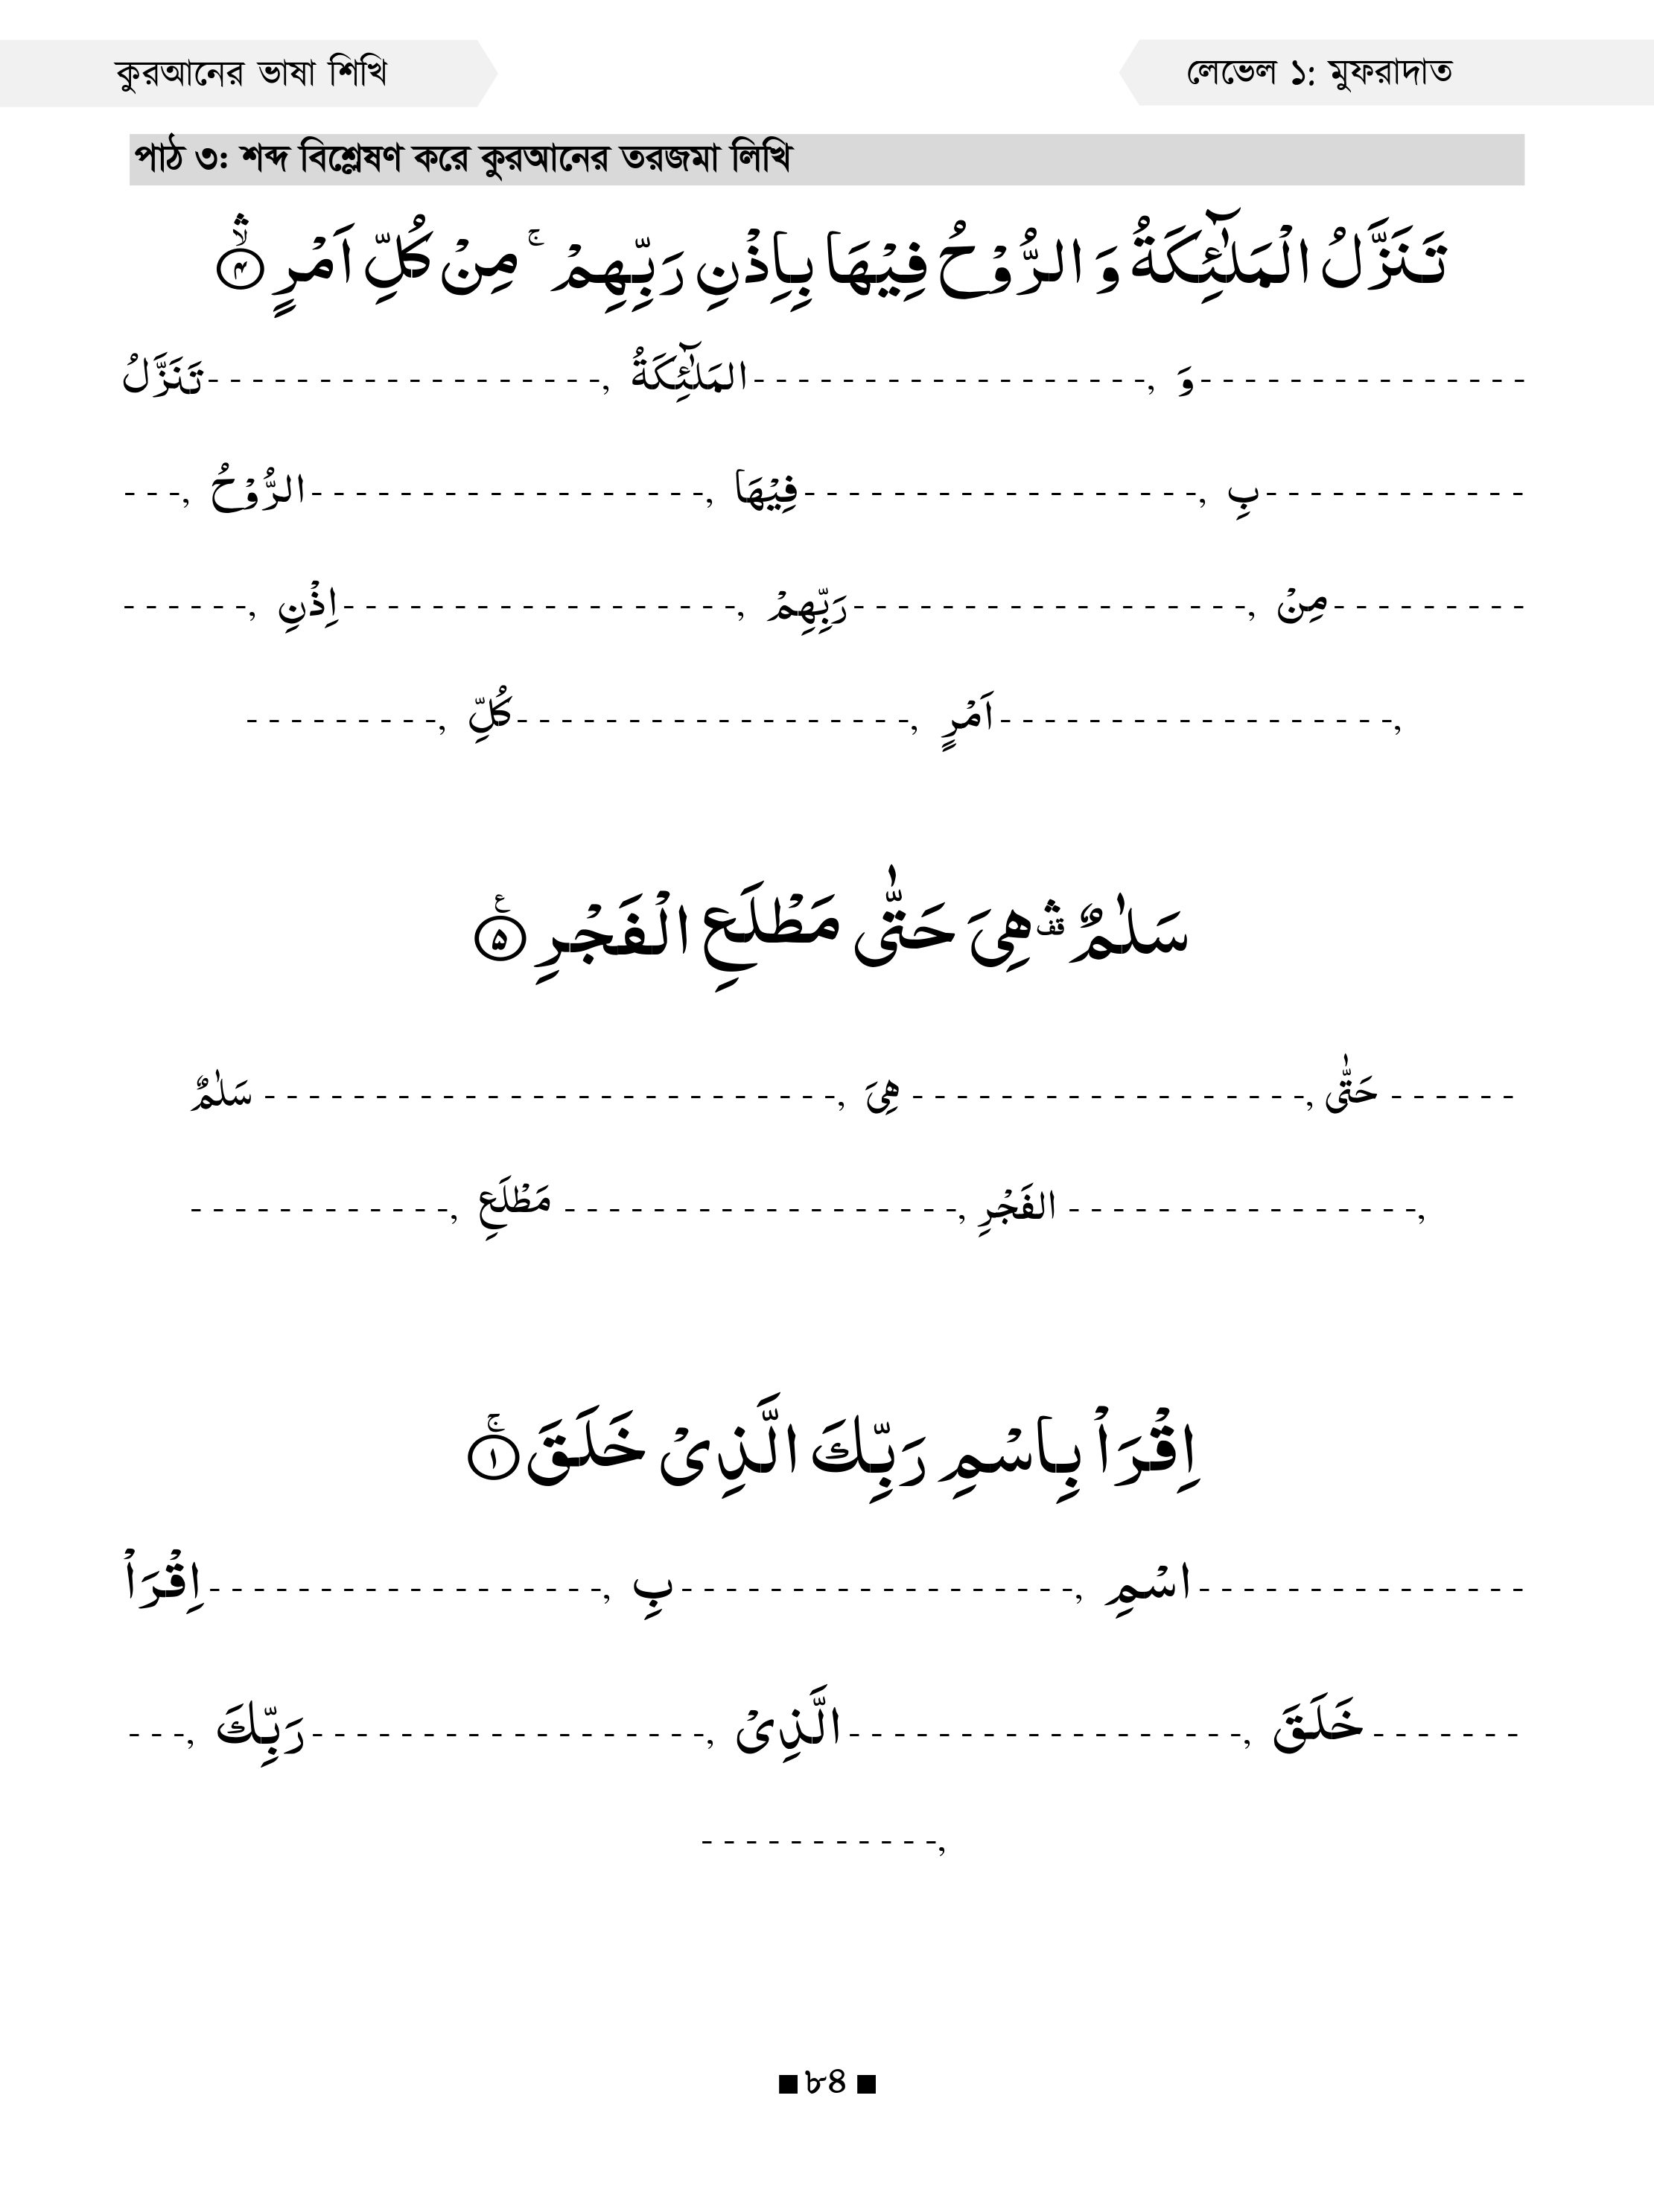 কুরআনের ভাষা শিখি
লেভেল ১: মুফরাদাত
পাঠ ৩: শব্দ বিশ্লেষণ করে কুরআনের তরজমা লিখি
تَنَزَّلُ الْمَلٰٓئِكَةُ وَ الرُّوْحُ فِيْهَا بِاِذْنِ رَبِّهِمْ ۚ مِنْ كُلِّ اَمْرٍ ۙۛ ۴
تَنَزَّلُ------------------, المَلٰٓئِكَةُ------------------, وَ---------------
---, الرُّوْحُ------------------, فِيْهَا------------------, بِ------------
------, اِذْنِ------------------, رَبِّهِمْ------------------, مِنْ---------
---------, كُلِّ------------------, اَمْرٍ------------------,
سَلٰمٌ ۛقف هِیَ حَتّٰی مَطْلَعِ الْفَجْرِ ۵ ع
سَلٰمٌ --------------------------, هِیَ ------------------, حَتّٰی ------
------------, مَطْلَعِ ------------------, الفَجْرِ ----------------,
اِقْرَاْ بِاسْمِ رَبِّكَ الَّذِیْ خَلَقَ ۚ ۱
اِقْرَاْ------------------, بِ------------------, اسْمِ---------------
---, رَبِّكَ------------------, الَّذِیْ------------------, خَلَقَ-------
-----------,
■ ৮৪ ■